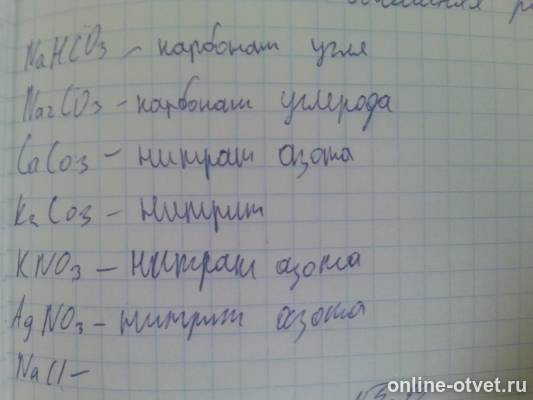 NaHCO3 – карбонат угля
Na2CO3 – карбонат углерода
CaCO3 – нитрат азота
K2CO3 – нитрит
KNO3 – нитрат азота
AgNO3 – нитрит азота
NaCl –
online-otvet.ru